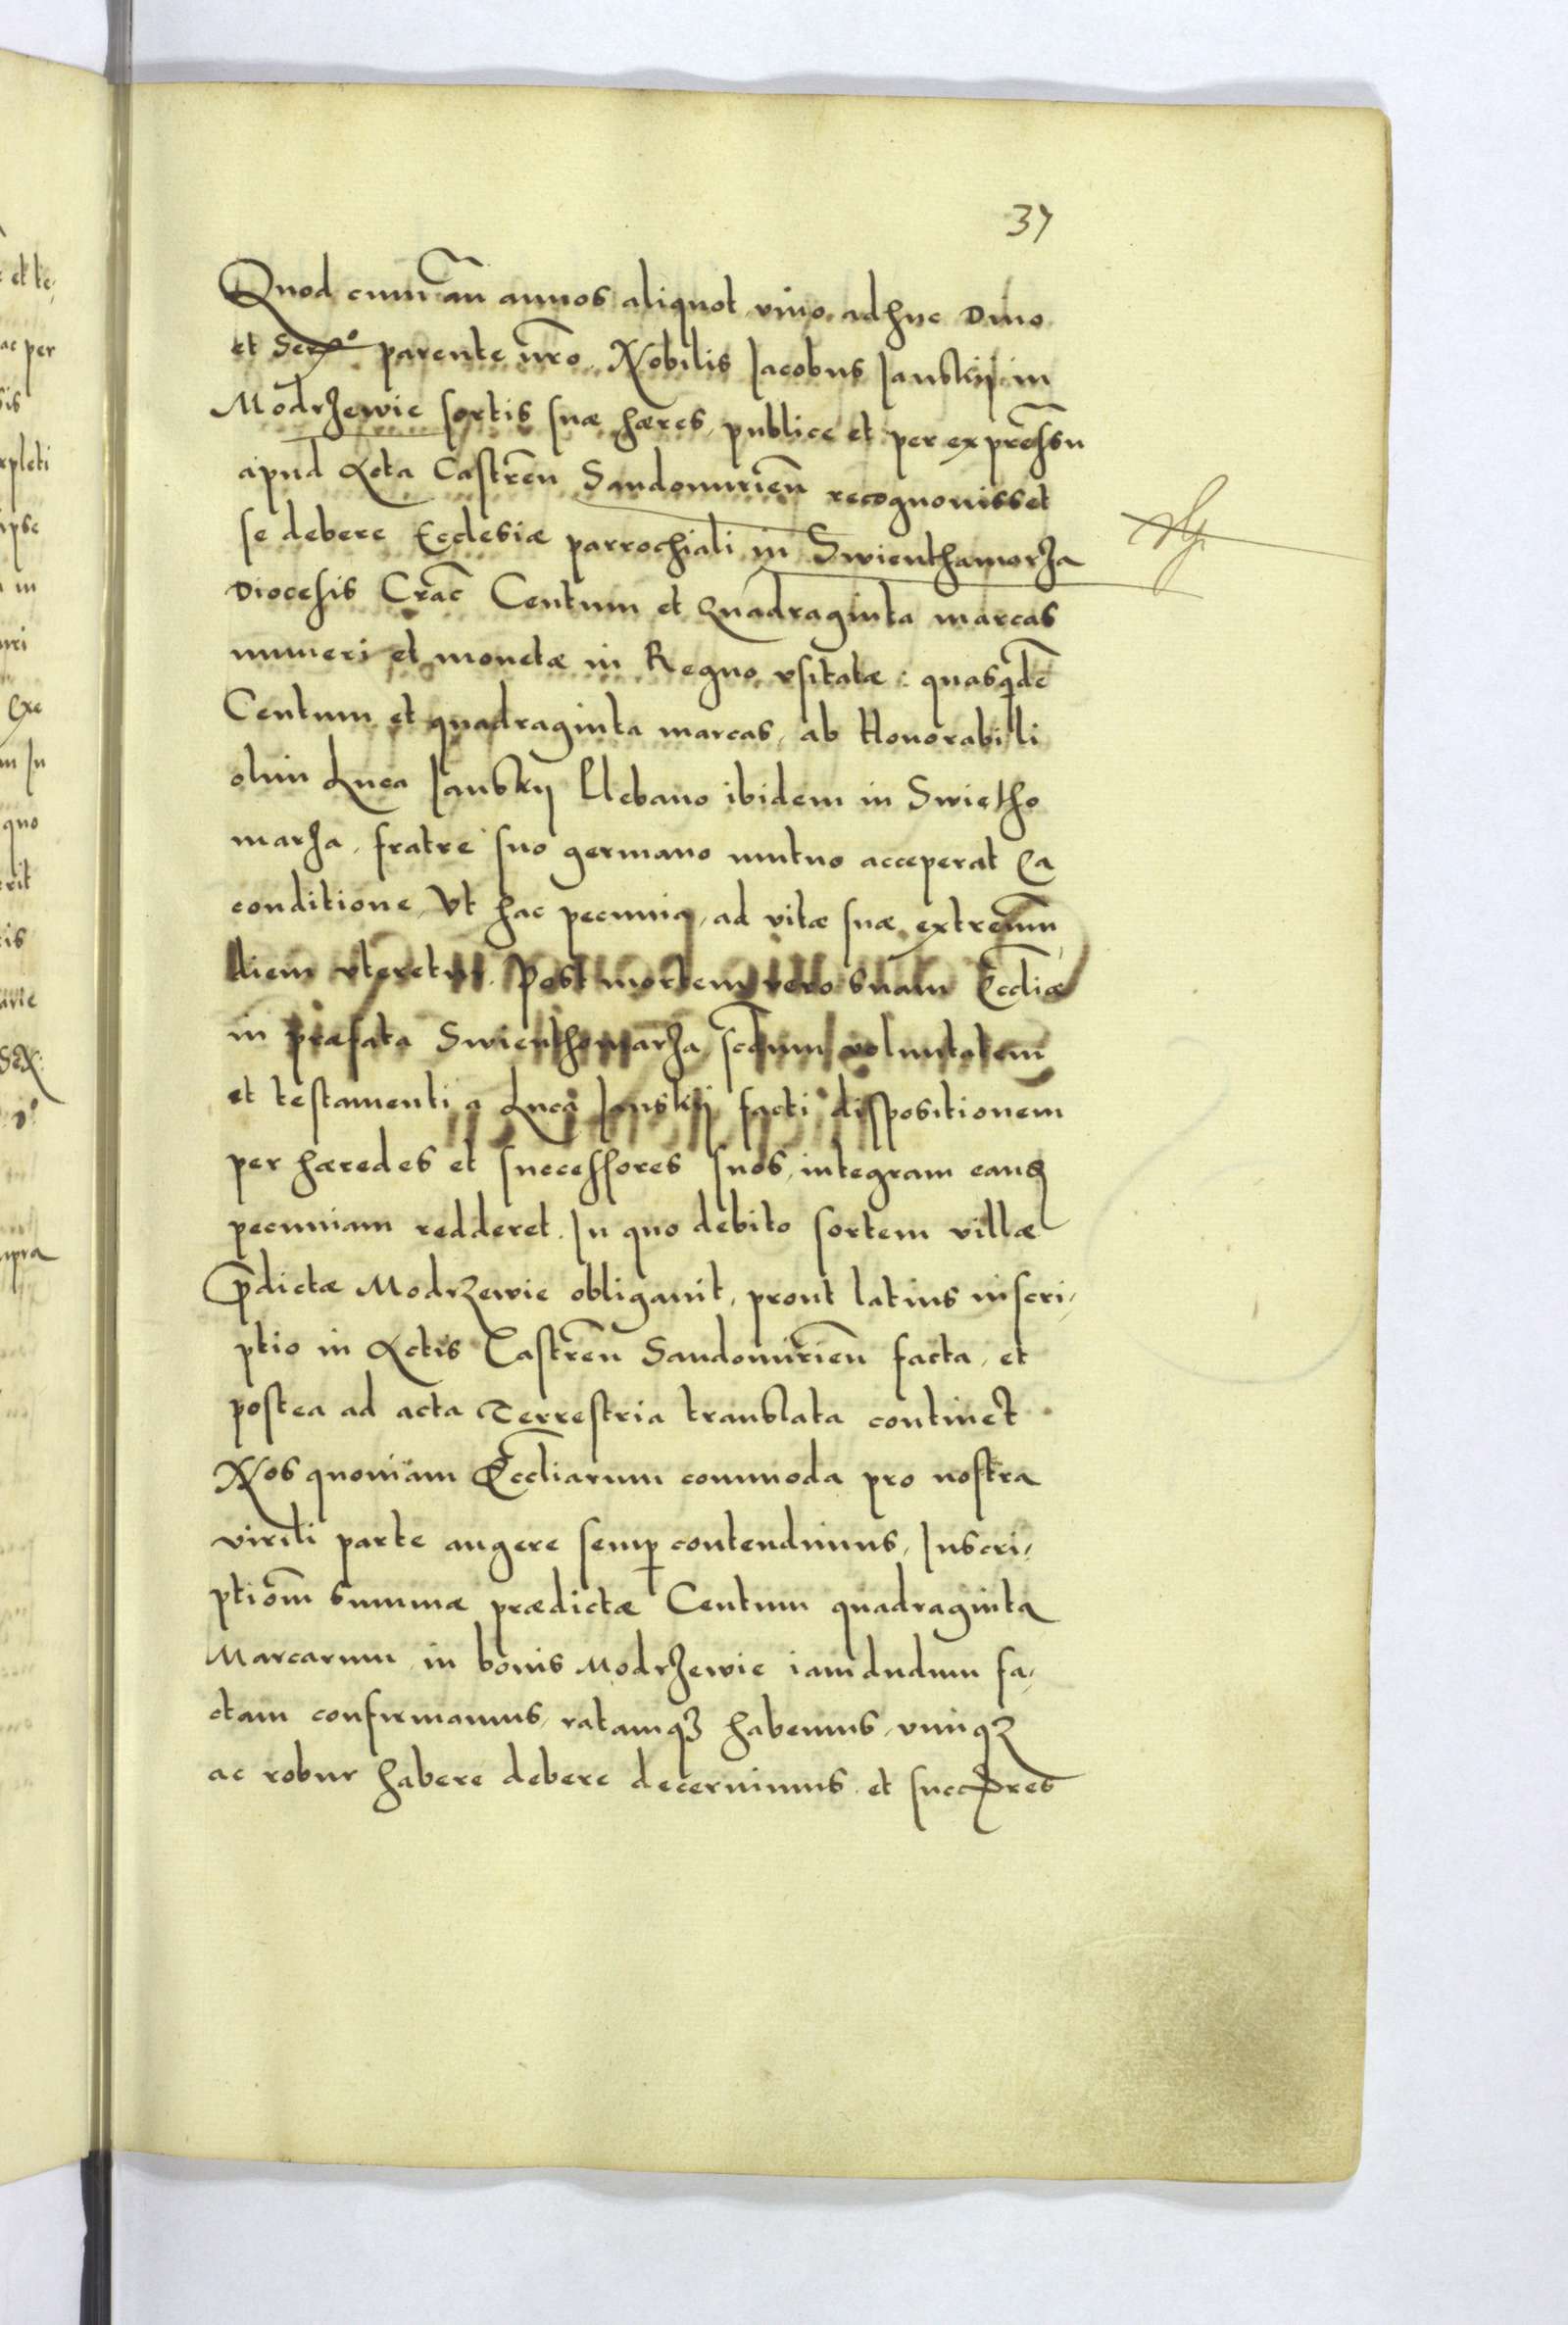 37
Quod cum añ annos aliquot, viuo adhuc Diuo
et Sermo parente ñro, Nobilis Jacobus Janskij in
Modrzewie sortis suæ hæres, publice et per expressũ
apud Acta Castreñ Sandomirieñ recognouisset
se debere Ecclesiæ parrochiali in Swienthamarza
Diocesis Crac̃ Centum et Quadraginta marcas
numeri et monetæ in Regno vsitatæ: quasqidẽ
Centum et quadraginta marcas, ab Honorabili
olim Luca Janskij Plebano ibidem in Swietho
marza, fratre suo germano mutuo acceperat Ea
conditione, Vt hac pecunia, ad vitæ suæ extremũ
diem vteretur. Post mortem vero suam Eccl̃iæ
in præfata Swienthomarza, scd̃um voluntatem
et testamenti a Luca Janskij facti dispositionem
per hæredes et successores suos, integram eanq
pecuniam redderet. In quo debito sortem villæ
P̃dictæ Modrzewie obligauit, prout latius inscri,
ptio in Actis Castreñ Sandomirieñ facta, et
postea ad acta Terrestria translata continet
Nos quoniam Eccl̃iarum commoda pro nostra
virili parte augere semp contendimus, Inscri,
ptiom̃ summæ prædictæ Centum quadraginta
Marcarum in bonis Modrzewie iamdudum fa,
ctam confirmamus, ratamqз habemus, vimqз
ac robur habere debere decernimus et